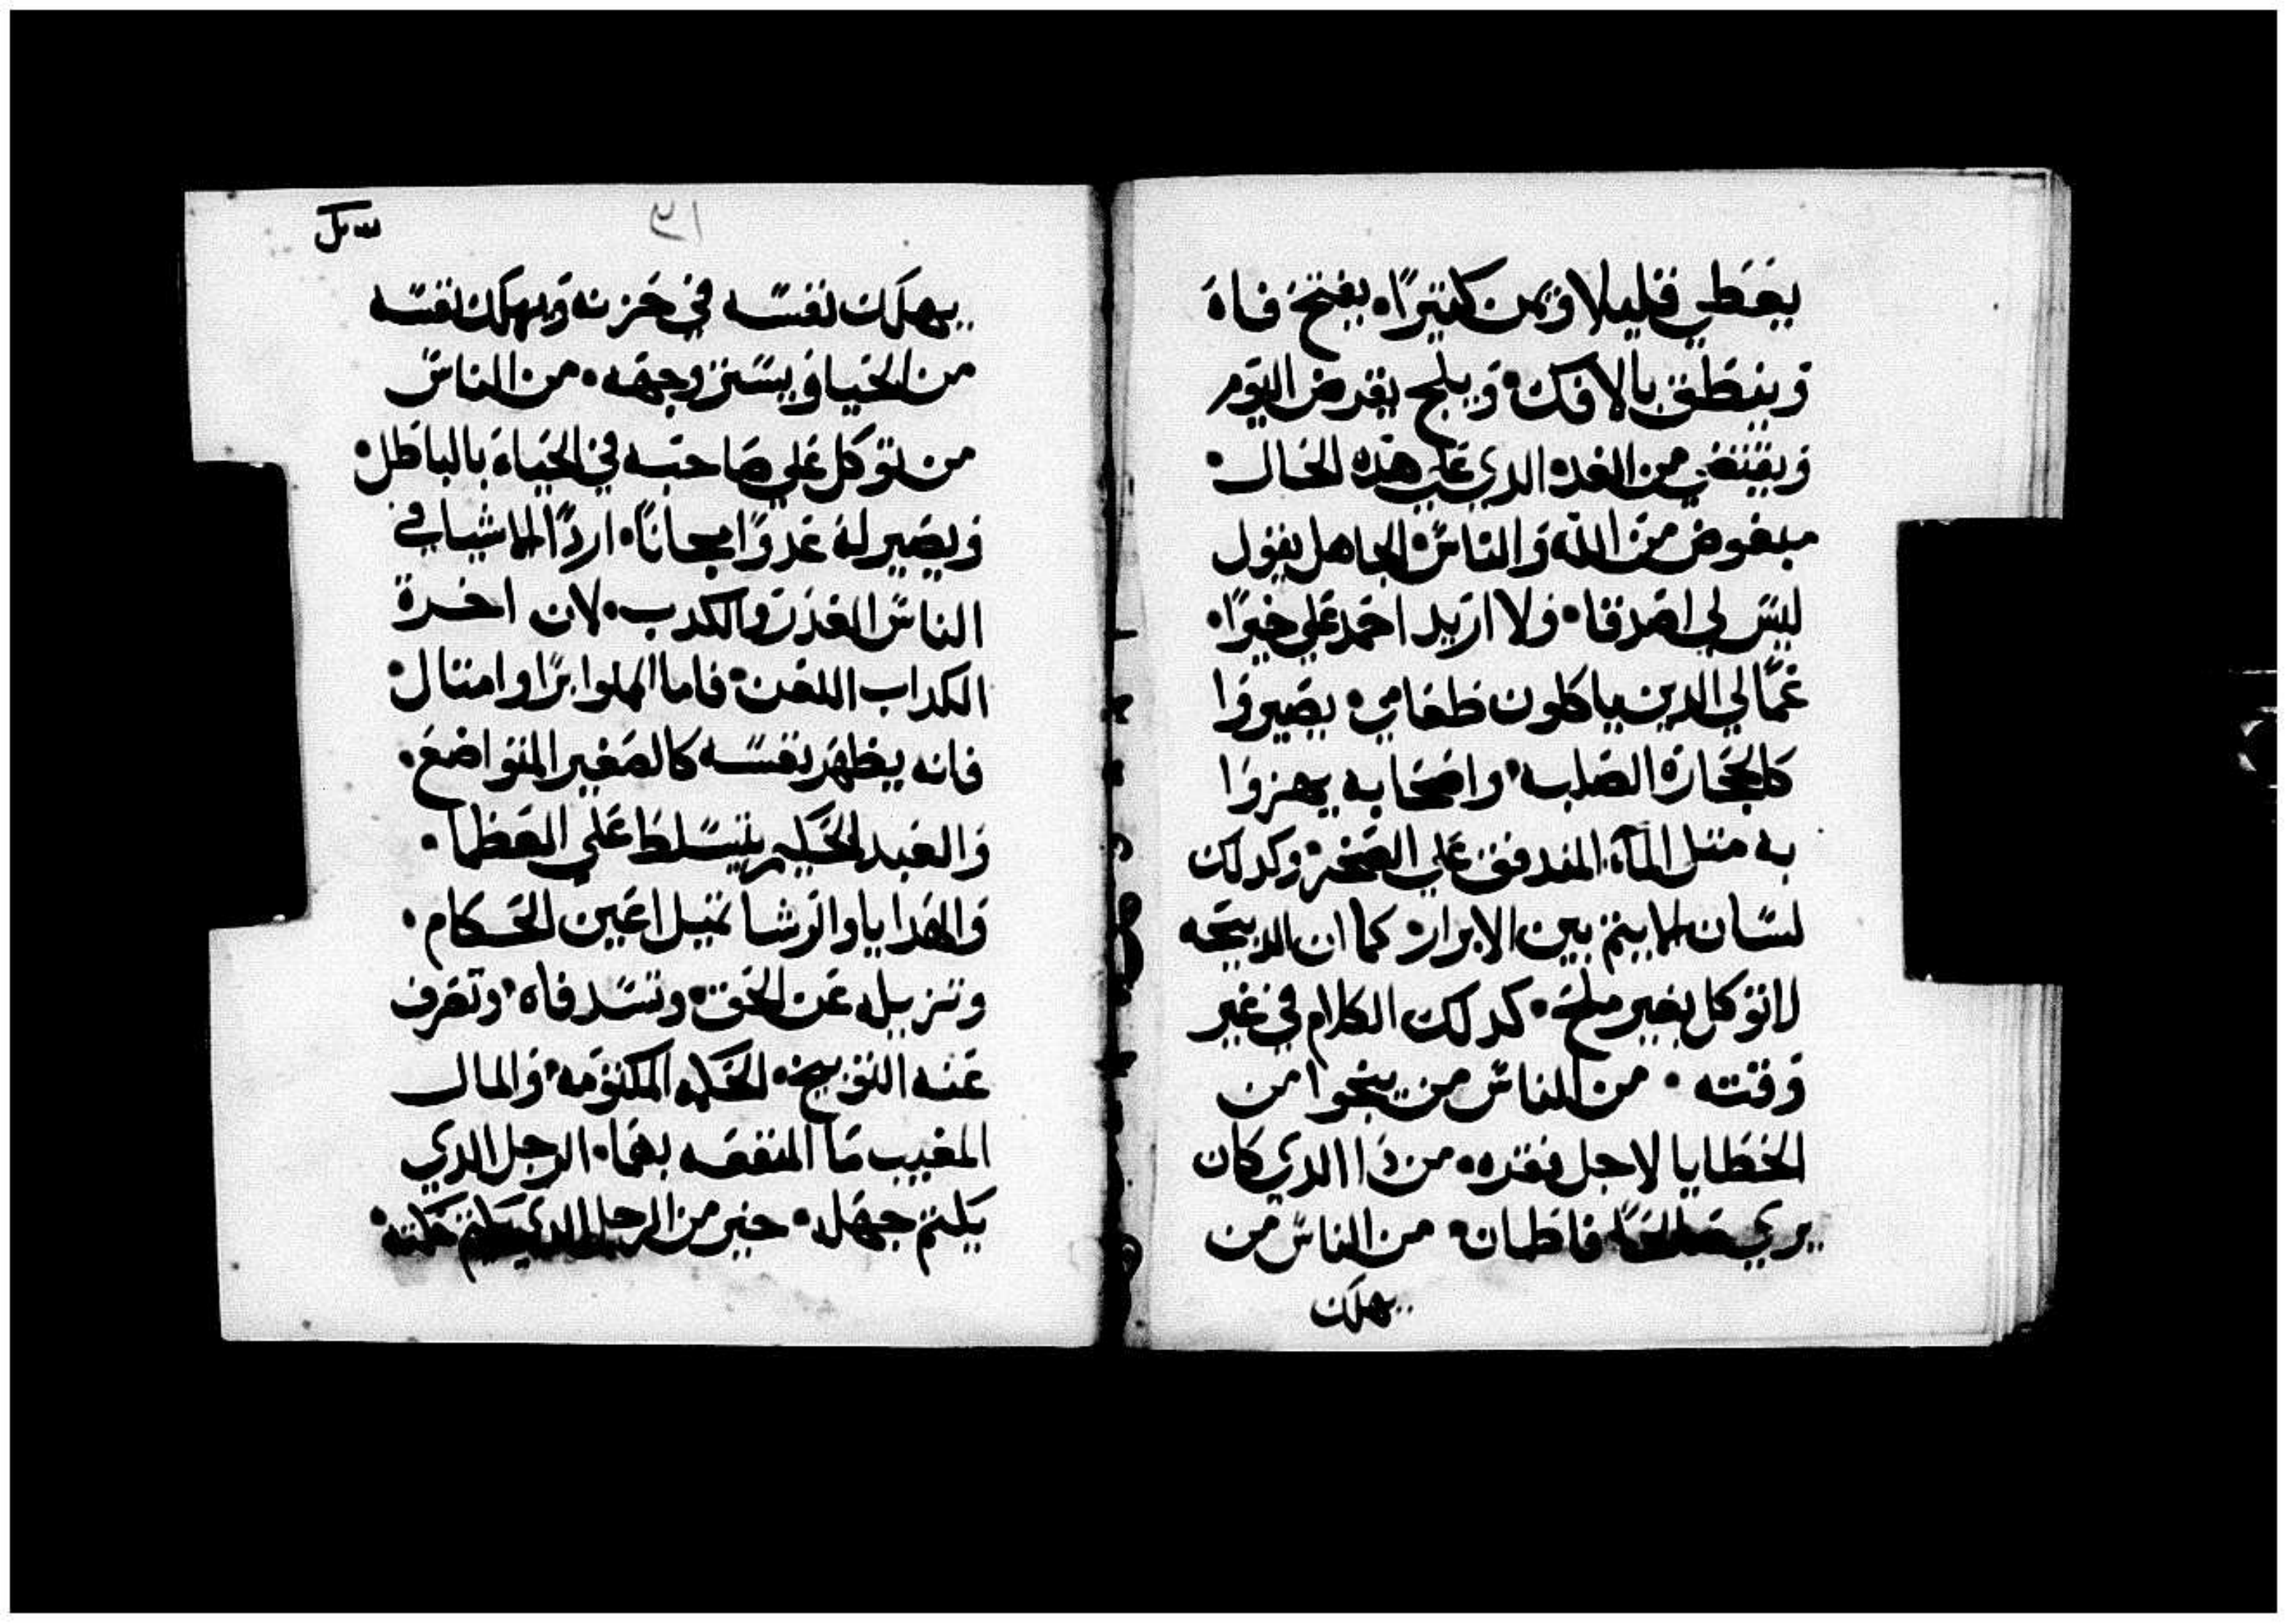 يعطي قليلا ويمن كتيرًا٠ يفتح فاة
وينطق بالافك٠ ويلج يقرض اليوم
ويقتضي من الغد٠ الدي علي هده الحال٠
مبغوض من الله والناس٠ الجاهل يقول
ليس لي اصدقا٠ ولا اريد احمد علي خيرًا٠
عمالي الدين ياكلون طعامي٠ يصيروا
كالحجارة الصلبه٠ واصحابه يهزوا
به متل المآء المندفق علي الصخر٠ وكدلك
لسان المايتم بين الابرار٠ كما ان الدبيحه
لاتوكل بغير ملح٠ كدلك الكلام في غير
وقته ٠ من الناس من ينجوا من
الخطايا لاجل فقره٠ من دا الدي كان
يري صالحًا فاطمان٠ من الناس من
يهلك
سيل
٢١
يهلك نفسه في حزنه ويهلك نفسه
من الحيا ويستر وجهه٠ من الناس
من توكل علي صاحبه في الحياء بالباطل٠
ويصير له عدوًا مجانًا٠ اردًا الاشيا في
الناس الغدر والكدب٠ لان اخرة
الكداب اللعن٠ فاما المملوا برًا وامتال٠
فانه يظهر نفسه كالصغير المتواضع٠
والعبد الحكيم يتسلط علي العظما٠
والهدايا والرشا تميل اعين الحكام٠
وتزيله عن الحق٠ وتسد فاه٠ وتصرف
عنه التوبيخ٠ الحكمه المكتومه٠ والمال
المغيب ما المنفعه بهما٠ الرجل الدي
يكتم جهله٠ خير من الرجل الدي يكتم حكمته٠